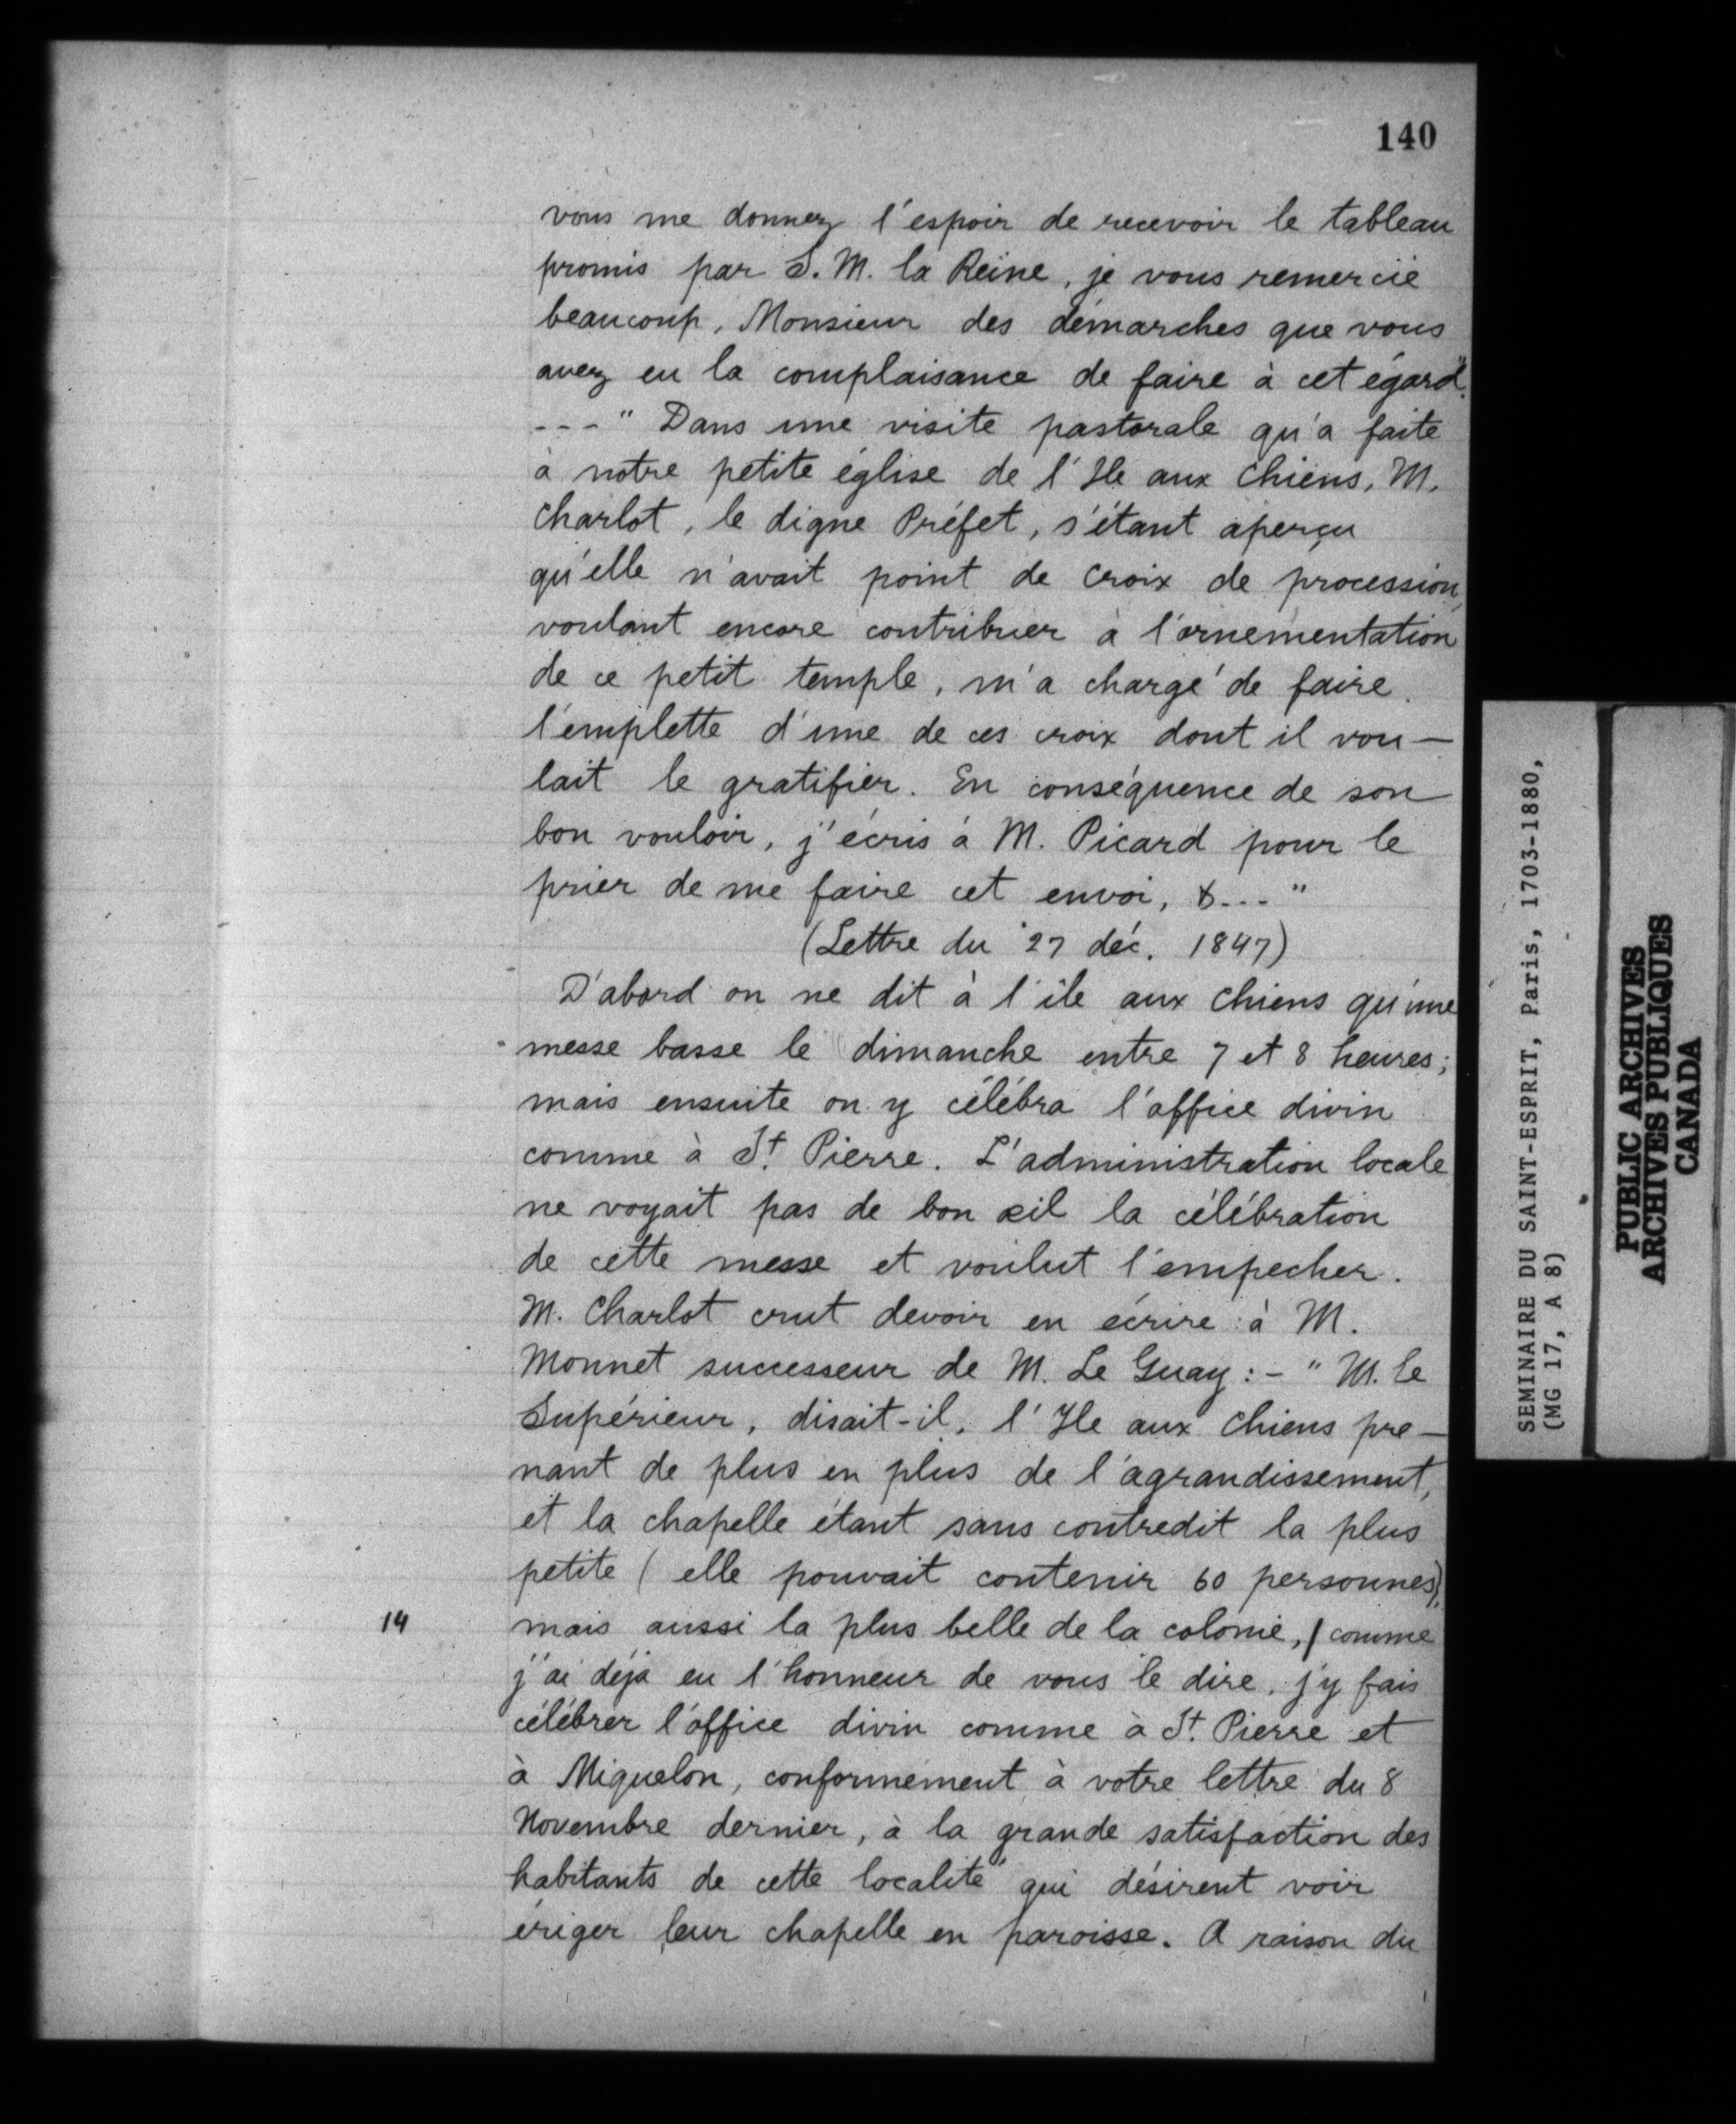 140
vous me donnez l'espoir de recevoir le tableau
promis par S. M. la Reine, je vous remercie
beaucoup, Monsieur des démarches que vous
avez eu la complaisance de faire à cet égard".
--- " Dans une visite pastorale qu'a faite
à notre petite église de l'Ile aux Chiens, M.
Charlot, le digne Préfet, s'étant aperçu
qu'elle n'avait point de croix de procession,
voulant encore contribuer à l'ornementation
de ce petit temple, m'a chargé de faire
l'emplette d'une de ces croix dont il vou-
lait le gratifier. En conséquence de son
bon vouloir, j'écris à M. Picard pour le
prier de me faire cet envoi, &... "
(Lettre du 27 déc. 1847)
D'abord on ne dit à l'île aux Chiens qu'une
messe basse le dimanche entre 7 et 8 heures;
mais ensuite on y célébra l'office divin
comme à St. Pierre. L'administration locale
ne voyait pas de bon œil la célébration
de cette messe et voulut l'empecher.
M. Charlot crut devoir en écrire à M.
Monnet successeur de M. Le Guay : - " M. le
Supérieur, disait-il, l'Ile aux Chiens pre-
nant de plus en plus de l'agrandissement,
et la chapelle étant sans contredit la plus
petite ( elle pouvait contenir 60 personnes),
14 mais aussi la plus belle de la colonie, / comme
j'ai déjà eu l'honneur de vous le dire, j'y fais
célébrer l'office divin comme à St. Pierre et
à Miquelon, conformément à votre lettre du 8
Novembre dernier, à la grande satisfaction des
habitants de cette localité qui désirent voir
ériger leur chapelle en paroisse. A raison du
SEMINAIRE DU SAINT-ESPRIT, Paris, 1703-1880,
(MG 17, A 8)
PUBLIC ARCHIVES
ARCHIVES PUBLIQUES
CANADA